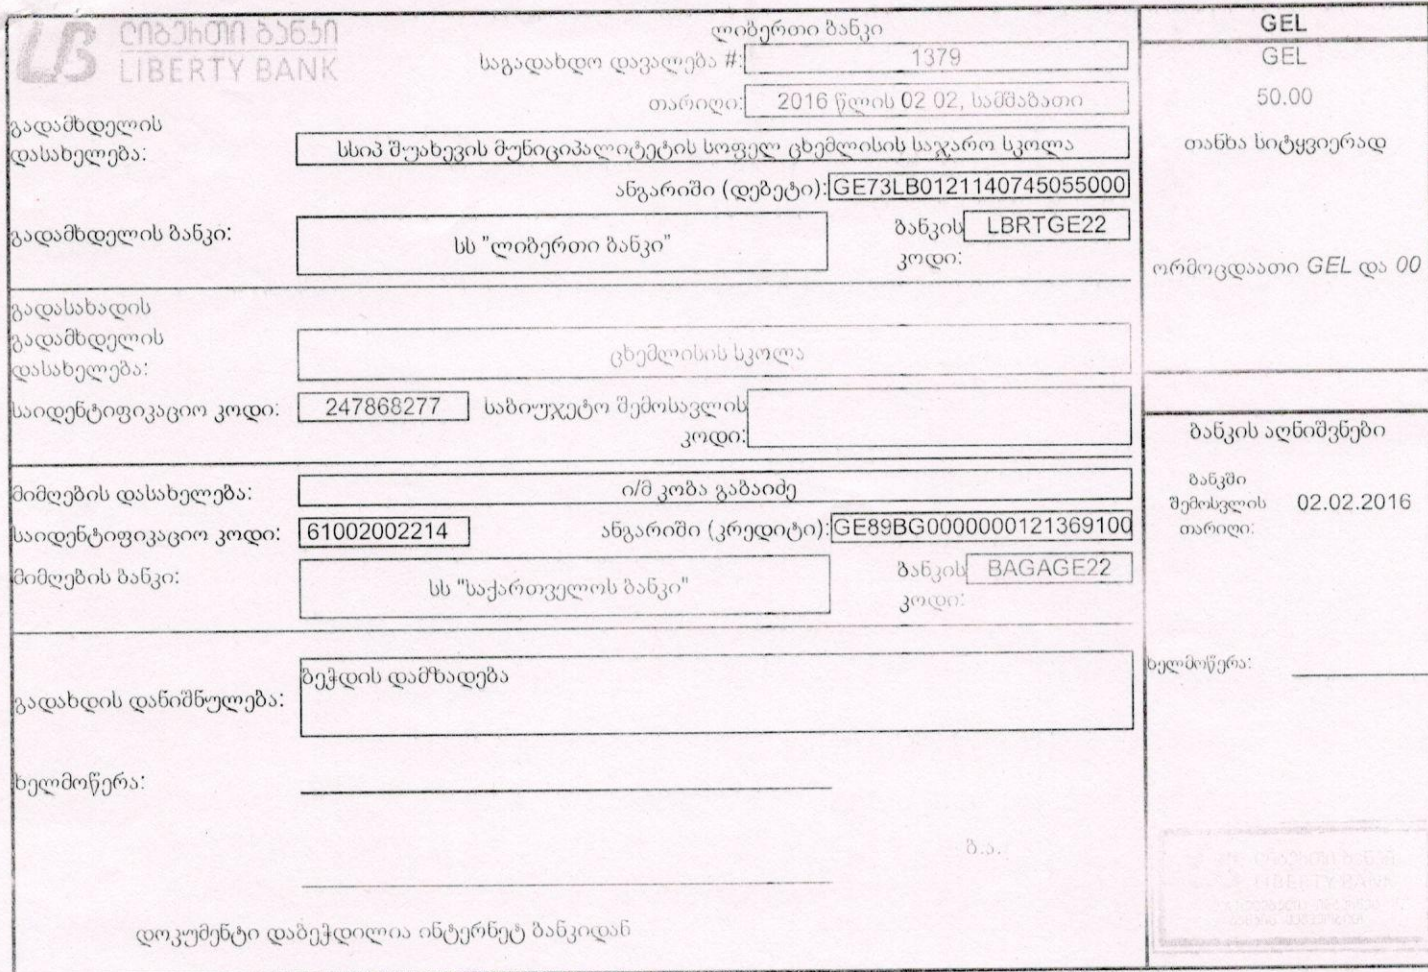 ლიბერთი ბანკი
LIBERTY BANK
ლიბერთი ბანკი
საგადახდო დავალება #: 1379
თარიღი: 2016 წლის 02 02, სამშაბათი
გადამხდელის
დასახელება: სსიპ შუახევის მუნიციპალიტეტის სოფელ ცხემლისის საჯარო სკოლა
ანგარიში (დებეტი): GE73LB0121140745055000
გადამხდელის ბანკი: სს "ლიბერთი ბანკი" ბანკის LBRTGE22
კოდი:
გადასახადის
გადამხდელის
დასახელება: ცხემლისის სკოლა
საიდენტიფიკაციო კოდი: 247868277 საბიუჯეტო შემოსავლის
კოდი:
მიმღების დასახელება: ი/მ კობა გაბაიძე
საიდენტიფიკაციო კოდი: 61002002214 ანგარიში (კრედიტი): GE89BG0000000121369100
მიმღების ბანკი: სს "საქართველოს ბანკი" ბანკის BAGAGE22
კოდი:
გადახდის დანიშნულება: ბეჭდის დამზადება
ხელმოწერა:
ბ.ა.
დოკუმენტი დაბეჭდილია ინტერნეტ ბანკიდან
GEL
GEL
50.00
თანხა სიტყვიერად
ორმოცდაათი GEL და 00
ბანკის აღნიშვნები
ბანკში
შემოსვლის 02.02.2016
თარიღი:
ხელმოწერა:
LIBERTY BANK